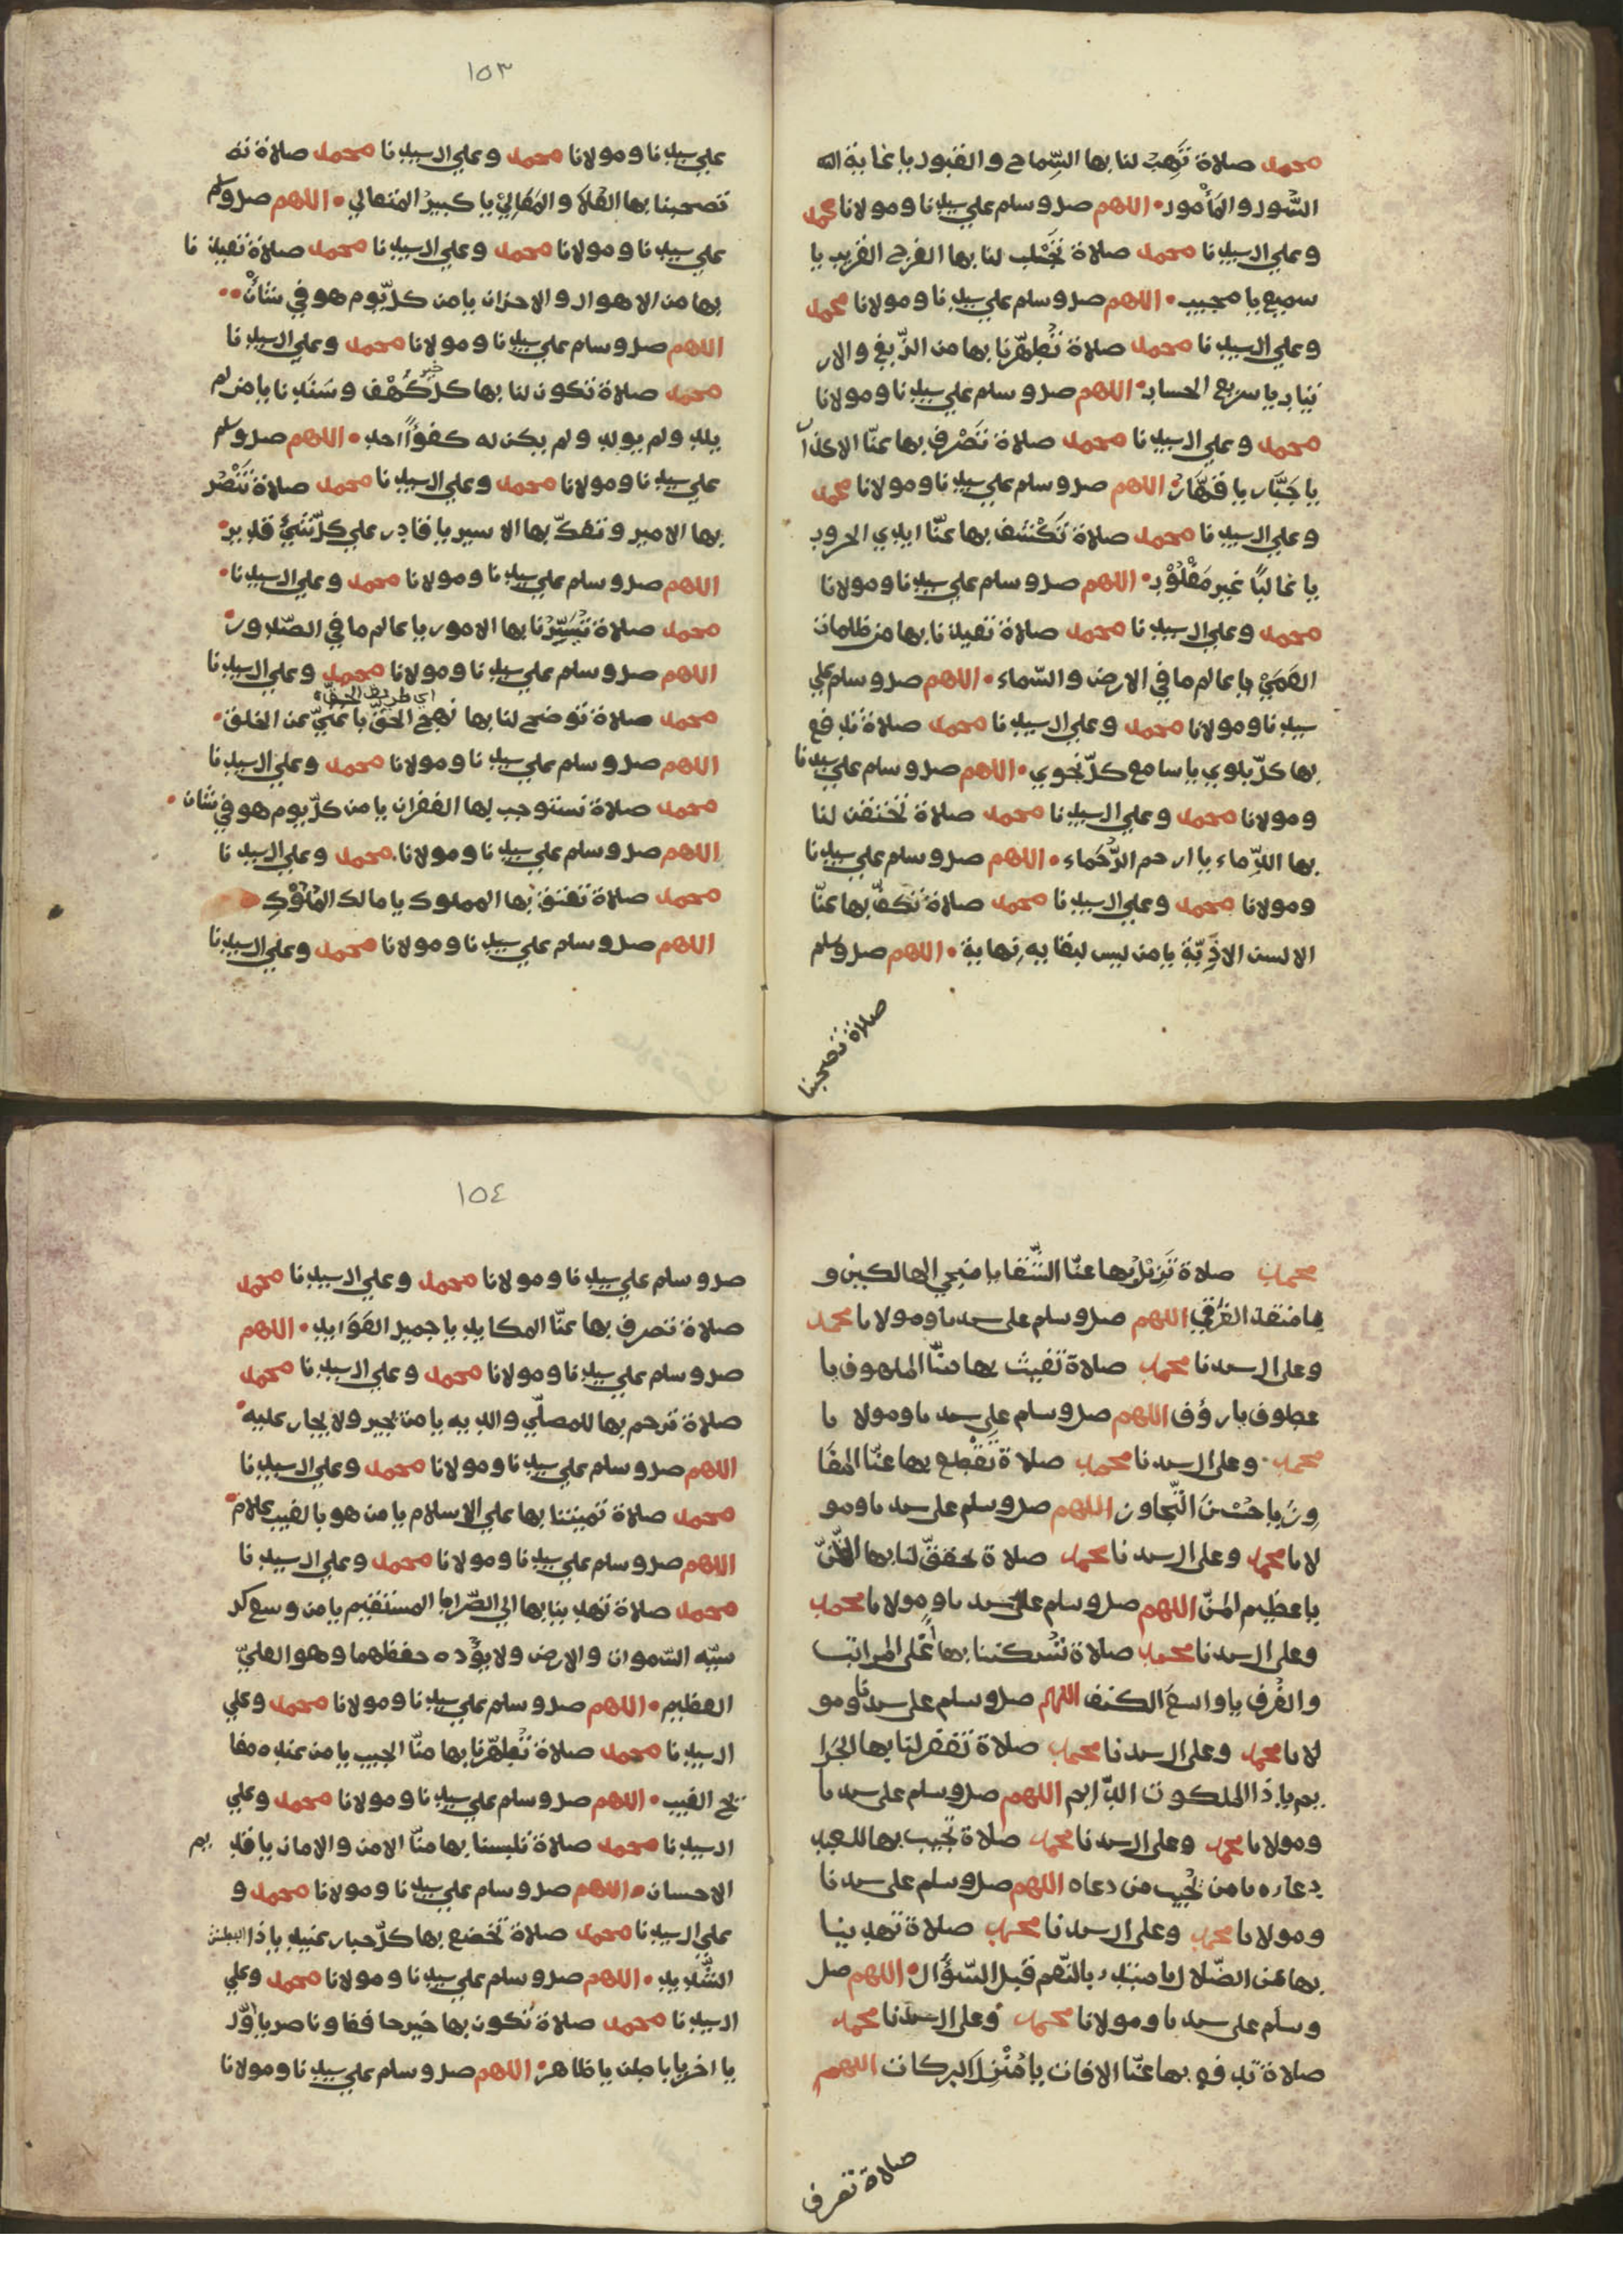 محمد صلاة تَهِبْ لنا بها السِّماح والقبول يا غاية الله
السُّول والمَأْمول • اللهم صل وسلم علي سيدنا ومولانا محمد
وعلي ال سيدنا محمد صلاة تَجْلب لنا بها الفرج القريب يا
سميع يا مجيب • اللهم صل وسلم علي سيدنا ومولانا محمد
وعلي ال سيدنا محمد صلاة تُطهِّرنا بها من الزّيغ والار
تياب يا سريع الحساب • اللهم صل وسلم علي سيدنا ومولانا
محمد وعلي ال سيدنا محمد صلاة تَصْرف بها عنّا الاكدار
يا جَبَّار يا قهَّار • اللهم صل وسلم علي سيدنا ومولانا محمد
وعلي ال سيدنا محمد صلاة تَكْشف بها عنّا ايدي الحروب
يا غالبًا غير مَغْلُوْب • اللهم صل وسلم علي سيدنا ومولانا
محمد وعلي ال سيدنا محمد صلاة تعيذنا بها من ظلمات
العَمَيْ يا عالم ما في الارض والسّماء • اللهم صل وسلم علي
سيدنا ومولانا محمد وعلي ال سيدنا محمد صلاة تدفع
بها كلّ بلوي يا سامع كلّ نجوي • اللهم صل وسلم علي سيدنا
ومولانا محمد وعلي ال سيدنا محمد صلاة تحقن لنا
بها الدِّماء يا ارحم الرُّحَماء • اللهم صل وسلم علي سيدنا
ومولانا محمد وعلي ال سيدنا محمد صلاة تكفُّ بها عنّا
الالسن الاذِيّة يا من ليس لبقايه نهاية • اللهم صل وسلم
صلاة تصحبنا
١٥٣
علي سيدنا ومولانا محمد وعلي ال سيدنا محمد صلاة ته
تصحبنا بها العُلا والمَعَالِيْ يا كبيرُ المتعالي • اللهم صل وسلم
علي سيدنا ومولانا محمد وعلي ال سيدنا محمد صلاة تعيذ نا
بها من الاهوال والاحزان يا من كلّ يوم هو في شَأْن ••
اللهم صل وسلم علي سيدنا ومولانا محمد وعلي ال سيدنا
محمد صلاة تكون لنا بها كل خير كَهْف وسَنَد نا يا من لم
يلد ولم يولد ولم يكن له كفوًا احد • اللهم صل وسلم
علي سيدنا ومولانا محمد وعلي ال سيدنا محمد صلاة تَنْصُر
بها الامير وتفكّ بها الاسير يا قادر علي كلّ شيْءٍ قدير •
اللهم صل وسلم علي سيدنا ومولانا محمد وعلي ال سيدنا •
محمد صلاة تُيَسِّرُ نا بها الامور يا عالم ما في الصّدور •
اللهم صل وسلم علي سيدنا ومولانا محمد وعلي ال سيدنا
اي طريق الحق
محمد صلاة توضح لنا بها نهج الحقّ يا غنيّ عن الخلق •
اللهم صل وسلم علي سيدنا ومولانا محمد وعلي ال سيدنا
محمد صلاة نستوجب بها الغفران يا من كلّ يوم هو في شان •
اللهم صل وسلم علي سيدنا ومولانا محمد وعلي ال سيد نا
محمد صلاة تعتق بها المملوك يا مالك المُلُوْكِ
اللهم صل وسلم علي سيدنا ومولانا محمد وعلي ال سيدنا
محمد صلاة تَزِيْل بها عنّا الشَّقا يا منجي الهالكين و
يا منقذ الغرقي اللهم صل وسلم على سيدنا ومولانا محمد
وعلى ال سيدنا محمد صلاة تُغيث بها منّا الملهوف يا
عطوف يا رؤف اللهم صل وسلم على سيدنا ومولا نا
محمد وعلى ال سيدنا محمد صلاة تَقْطع بها عنّا المفَا
وِزَ يا حَسَنَ التّجاوز اللهم صل وسلم على سيدنا ومو
لانا محمد وعلى ال سيدنا محمد صلاة تحقق لنا بها الظّنّ
يا عظيم المنّ اللهم صل وسلم على سيدنا ومولانا محمد
وعلى ال سيدنا محمد صلاة تُسكننا بها أعْلى المراتب
والغُرف يا واسعَ الكنف اللهم صل وسلم على سيدنا ومو
لانا محمد وعلى ال سيدنا محمد صلاة تغفر لنا بها الجَرا
يم يا ذا الملكوت الدّايم اللهم صل وسلم على سيدنا
ومولانا محمد وعلى ال سيدنا محمد صلاة تُجيب بها للعبد
دعاءه يا من يُجيب من دعاه اللهم صل وسلم على سيدنا
ومولانا محمد وعلى ال سيدنا محمد صلاة تهدينا
بها عن الضّلال يا مبتدء بالنّعم قبل السّؤال • اللهم صل
وسلم على سيدنا ومولانا محمد وعلى ال سيدنا محمد
صلاة تدفع بها عنّا الافات يا مُنْزِلَ البركات اللهم
صلاة تصرف
١٥٤
صل وسلم علي سيدنا ومولانا محمد وعلي ال سيدنا محمد
صلاة تصرف بها عنّا المكايد يا جميل العَوَايد • اللهم
صل وسلم علي سيدنا ومولانا محمد وعلي ال سيدنا محمد
صلاة ترحم بها للمصلّي والديه يا من يجير ولا يجار عليه •
اللهم صل وسلم علي سيدنا ومولانا محمد وعلي ال سيدنا
محمد صلاة تميتنا بها علي الاسلام يا من هو بالغيب علام •
اللهم صل وسلم علي سيدنا ومولانا محمد وعلي ال سيدنا
محمد صلاة تهدينا بها الي الصّراط المستقيم يا من وسع كر
سيّه السّموات والارض ولا يؤده حفظهما وهو العليّ
العظيم • اللهم صل وسلم علي سيدنا ومولانا محمد وعلي
ال سيدنا محمد صلاة تُطهِّرنا بها منّا الجيب يا من عنده مفا
تح الغيب • اللهم صل وسلم علي سيدنا ومولانا محمد وعلي
ال سيدنا محمد صلاة تُلبسنا بها منّا الامن والامان يا قد يم
الاحسان • اللهم صل وسلم علي سيدنا ومولانا محمد و
علي ال سيدنا محمد صلاة تخضع بها كلّ جبار عنيد يا ذا البطش
الشَّديد • اللهم صل وسلم علي سيدنا ومولانا محمد وعلي
ال سيدنا محمد صلاة تكون بها خير حافظا وناصر يا اوّل
يا اخر يا باطن يا ظاهر • اللهم صل وسلم علي سيدنا ومولانا